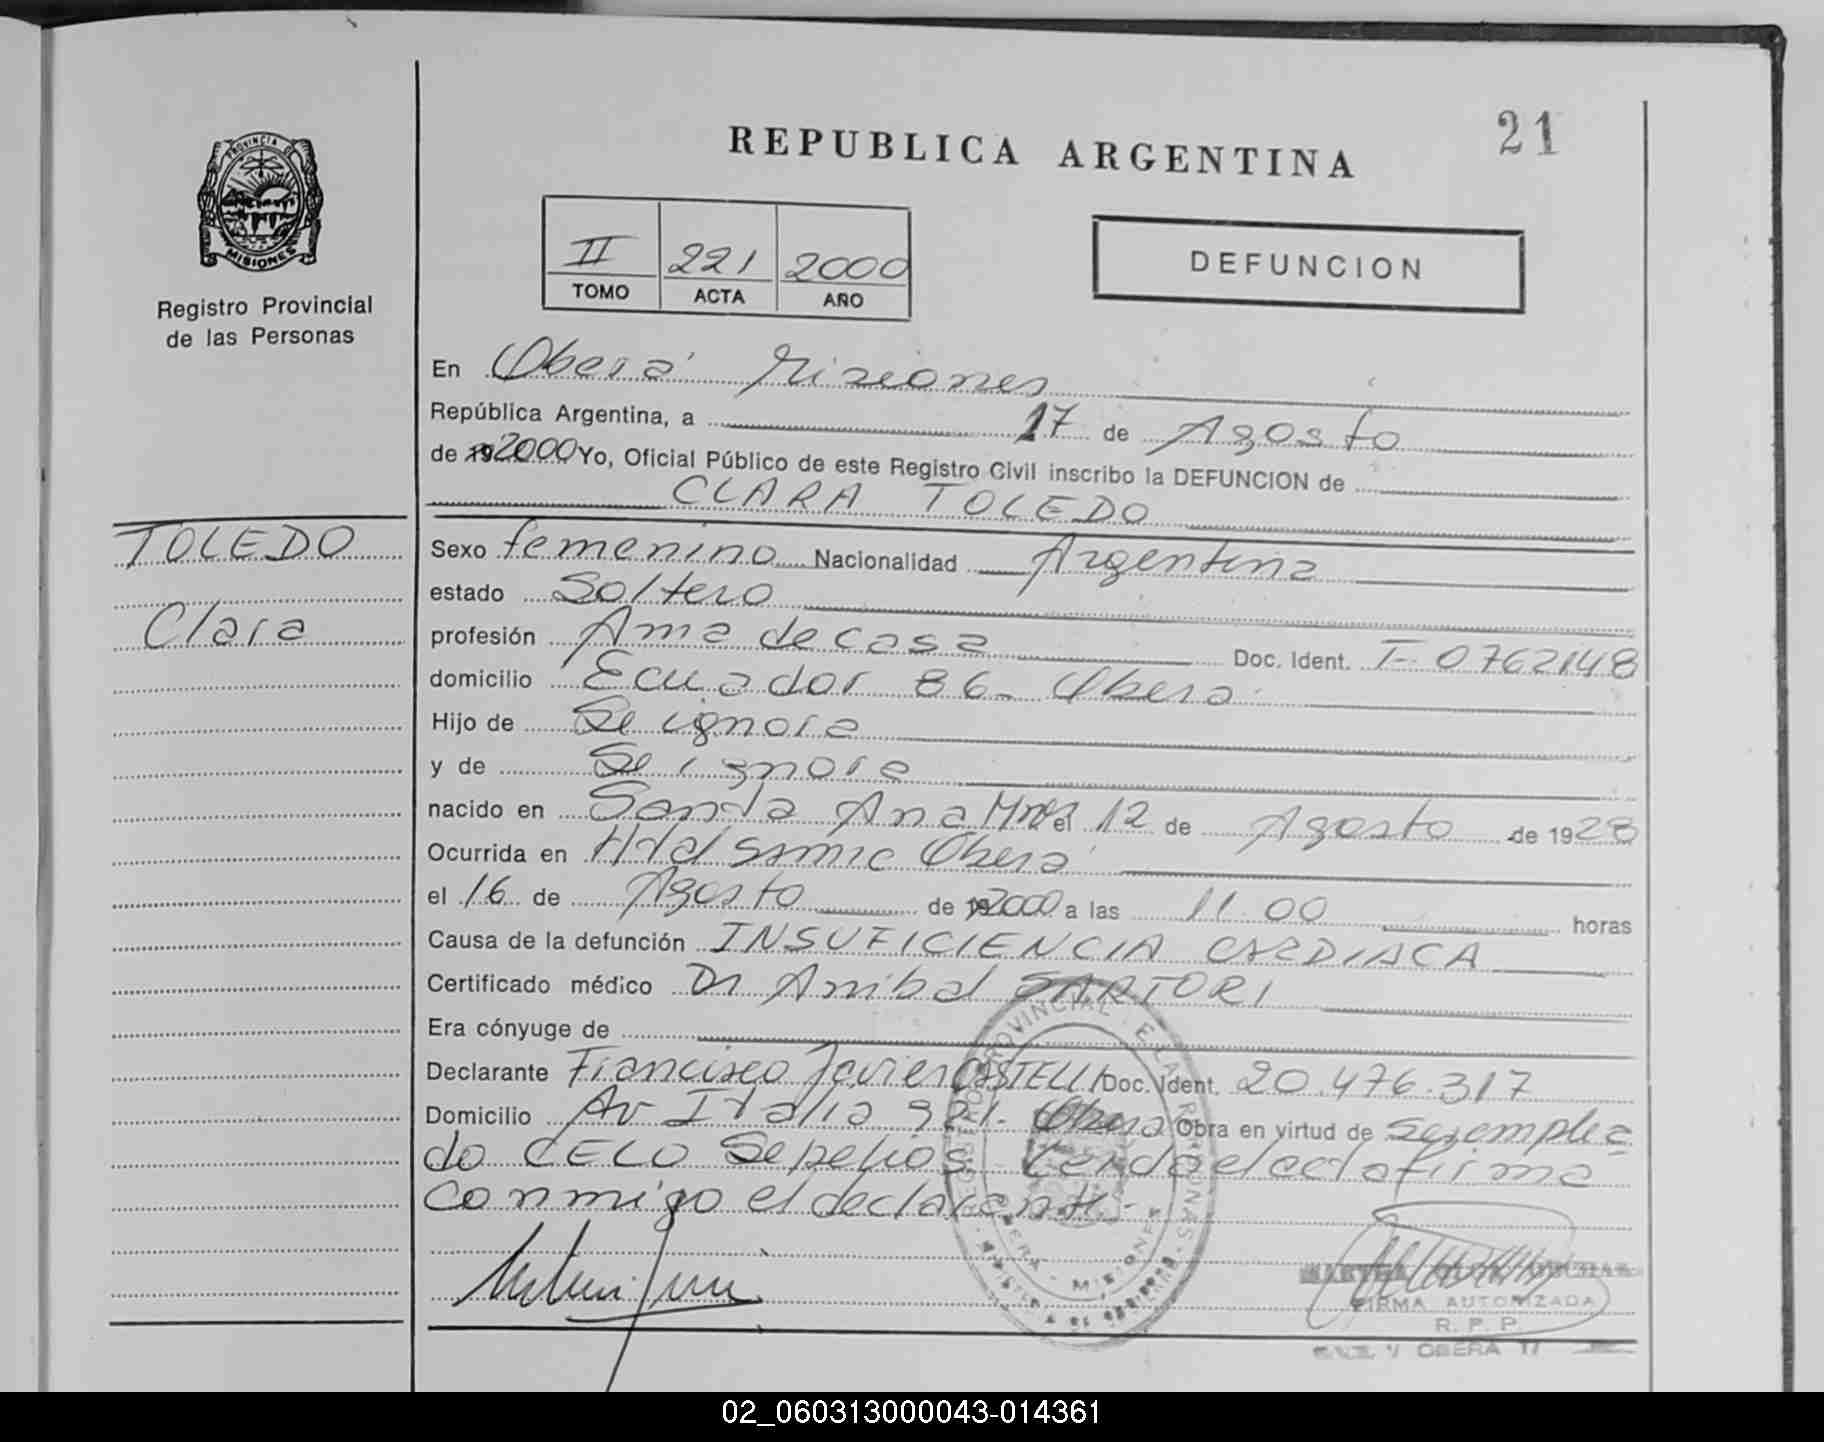 21
REPUBLICA ARGENTINA
PROVINCIA DE
MISIONES
Registro Provincial
de las Personas
II 221 2000
TOMO ACTA AÑO
DEFUNCION
En Oberá Misiones
República Argentina, a 17 de Agosto
de 19 2000 Yo, Oficial Público de este Registro Civil inscribo la DEFUNCION de
CLARA TOLEDO
TOLEDO
Clara
Sexo femenino Nacionalidad Argentina
estado Soltero
profesión Ama de casa Doc. Ident. F- 0762148
domicilio Ecuador 86- Oberá
Hijo de Se ignora
y de Se ignora
nacido en Santa Ana Mnes el 12 de Agosto de 1928
Ocurrida en Htal SAMIC Oberá
el 16 de Agosto de 19 2000 a las 11.00 horas
Causa de la defunción INSUFICIENCIA CARDIACA
Certificado médico Dr Anibal SARTORI
Era cónyuge de
Declarante Francisco Javier CASTELLI Doc. Ident. 20.476.317
Domicilio Av Italia 921. Oberá Obra en virtud de ser emplea
do CELO Sepelios. Leida el acta firma
conmigo el declarante.-
REGISTRO PROVINCIAL DE LAS PERSONAS
OBERA - MISIONES
MINISTERIO DE GOBIERNO
FIRMA AUTORIZADA
R. P. P.
OBERA
02_060313000043-014361